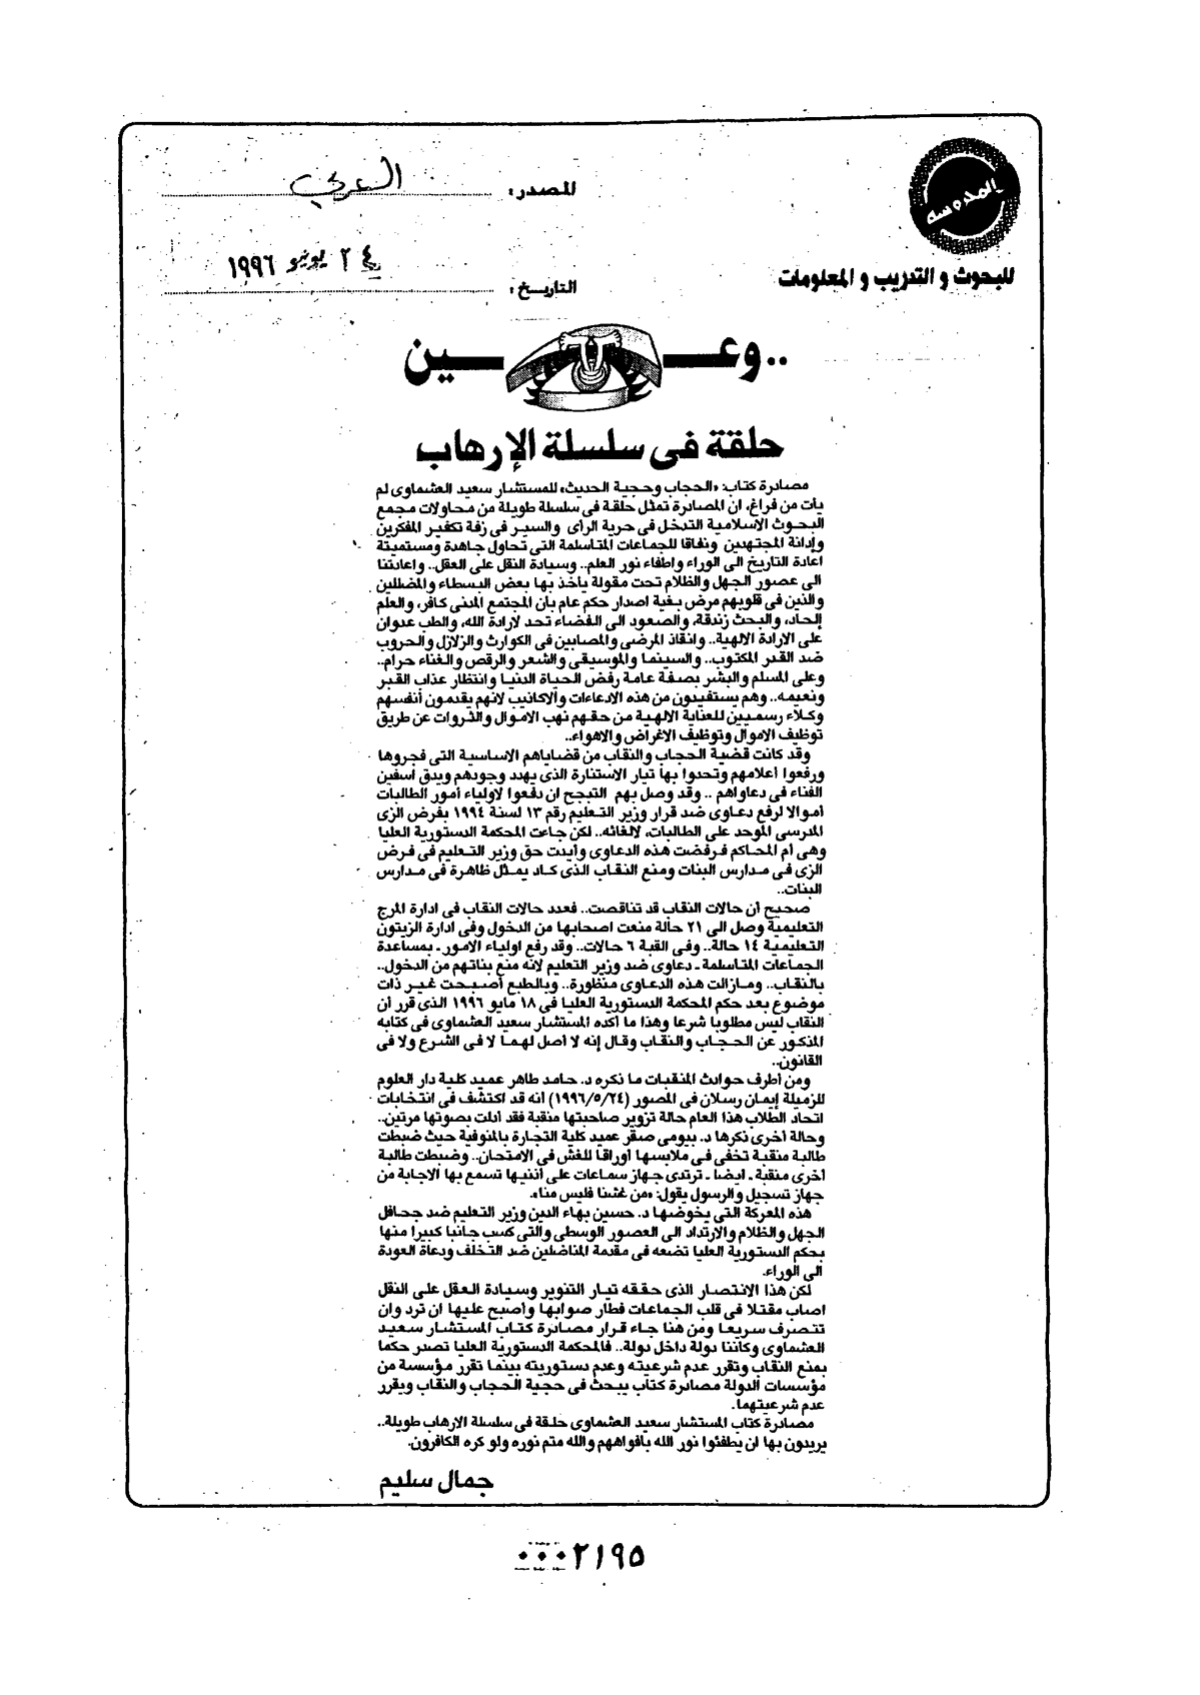 المدرسه
للبحوث و التدريب و المعلومات
المصدر: العربي
التاريخ: ٢٤ يونيو ١٩٩٦
..وعــين
حلقة فى سلسلة الإرهاب
مصادرة كتاب: «الحجاب وحجية الحديث» للمستشار سعيد العشماوى لم
يأت من فراغ، ان المصادرة تمثل حلقة فى سلسلة طويلة من محاولات مجمع
البحوث الاسلامية التدخل فى حرية الرأى والسير فى زفة تكفير المفكرين
وإدانة المجتهدين ونفاقا للجماعات المتاسلمة التى تحاول جاهدة ومستميتة
اعادة التاريخ الى الوراء واطفاء نور العلم.. وسيادة النقل على العقل.. واعادتنا
الى عصور الجهل والظلام تحت مقولة يأخذ بها بعض البسطاء والمضللين
والذين فى قلوبهم مرض بغية اصدار حكم عام بأن المجتمع المدنى كافر، والعلم
إلحاد، والبحث زندقة، والصعود الى الفضاء تحد لارادة الله، والطب عدوان
على الارادة الالهية.. وانقاذ المرضى والمصابين فى الكوارث والزلازل والحروب
ضد القدر المكتوب.. والسينما والموسيقى والشعر والرقص والغناء حرام..
وعلى المسلم والبشر بصفة عامة رفض الحياة الدنيا وانتظار عذاب القبر
ونعيمه.. وهم يستفيدون من هذه الادعاءات والاكاذيب لانهم يقدمون أنفسهم
وكلاء رسميين للعناية الالهية من حقهم نهب الاموال والثروات عن طريق
توظيف الاموال وتوظيف الاغراض والاهواء..
وقد كانت قضية الحجاب والنقاب من قضاياهم الاساسية التى فجروها
ورفعوا اعلامهم وتحدوا بها تيار الاستنارة الذى يهدد وجودهم ويدق أسفين
الفناء فى دعاواهم .. وقد وصل بهم التبجح ان دفعوا لاولياء أمور الطالبات
أموالا لرفع دعاوى ضد قرار وزير التعليم رقم ١٣ لسنة ١٩٩٤ بفرض الزى
المدرسى الموحد على الطالبات، لالغائه.. لكن جاءت المحكمة الدستورية العليا
وهى أم المحاكم فرفضت هذه الدعاوى وأيدت حق وزير التعليم فى فرض
الزى فى مدارس البنات ومنع النقاب الذى كاد يمثل ظاهرة فى مدارس
البنات..
صحيح أن حالات النقاب قد تناقصت.. فعدد حالات النقاب فى ادارة المرج
التعليمية وصل الى ٢١ حالة منعت اصحابها من الدخول وفى ادارة الزيتون
التعليمية ١٤ حالة.. وفى القبة ٦ حالات.. وقد رفع اولياء الامور ـ بمساعدة
الجماعات المتاسلمة ـ دعاوى ضد وزير التعليم لانه منع بناتهم من الدخول..
بالنقاب.. ومازالت هذه الدعاوى منظورة.. وبالطبع أصبحت غير ذات
موضوع بعد حكم المحكمة الدستورية العليا فى ١٨ مايو ١٩٩٦ الذى قرر أن
النقاب ليس مطلوبا شرعا وهذا ما أكده المستشار سعيد العشماوى فى كتابه
المذكور عن الحجاب والنقاب وقال إنه لا اصل لهما لا فى الشرع ولا فى
القانون..
ومن أطرف حوادث المنقبات ما ذكره د. حامد طاهر عميد كلية دار العلوم
للزميلة إيمان رسلان فى المصور (١٩٩٦/٥/٢٤) أنه قد اكتشف فى انتخابات
اتحاد الطلاب هذا العام حالة تزوير صاحبتها منقبة فقد أدلت بصوتها مرتين..
وحالة أخرى ذكرها د. بيومى صقر عميد كلية التجارة بالمنوفية حيث ضبطت
طالبة منقبة تخفى فى ملابسها أوراقا للغش فى الامتحان.. وضبطت طالبة
اخرى منقبة ـ ايضا ـ ترتدى جهاز سماعات على أذنيها تسمع بها الاجابة من
جهاز تسجيل والرسول يقول: «من غشنا فليس منا».
هذه المعركة التى يخوضها د. حسين بهاء الدين وزير التعليم ضد جحافل
الجهل والظلام والارتداد الى العصور الوسطى والتى كسب جانبا كبيرا منها
بحكم الدستورية العليا تضعه فى مقدمة المناضلين ضد التخلف ودعاة العودة
الى الوراء.
لكن هذا الانتصار الذى حققه تيار التنوير وسيادة العقل على النقل
اصاب مقتلا فى قلب الجماعات فطار صوابها وأصبح عليها ان ترد وان
تتصرف سريعا ومن هنا جاء قرار مصادرة كتاب المستشار سعيد
العشماوى وكاننا دولة داخل دولة.. فالمحكمة الدستورية العليا تصدر حكما
بمنع النقاب وتقرر عدم شرعيته وعدم دستوريته بينما تقرر مؤسسة من
مؤسسات الدولة مصادرة كتاب يبحث فى حجية الحجاب والنقاب ويقرر
عدم شرعيتهما.
مصادرة كتاب المستشار سعيد العشماوى حلقة فى سلسلة الارهاب طويلة..
يريدون بها ان يطفئوا نور الله بافواههم والله متم نوره ولو كره الكافرون.
جمال سليم
٠٠٠٢١٩٥